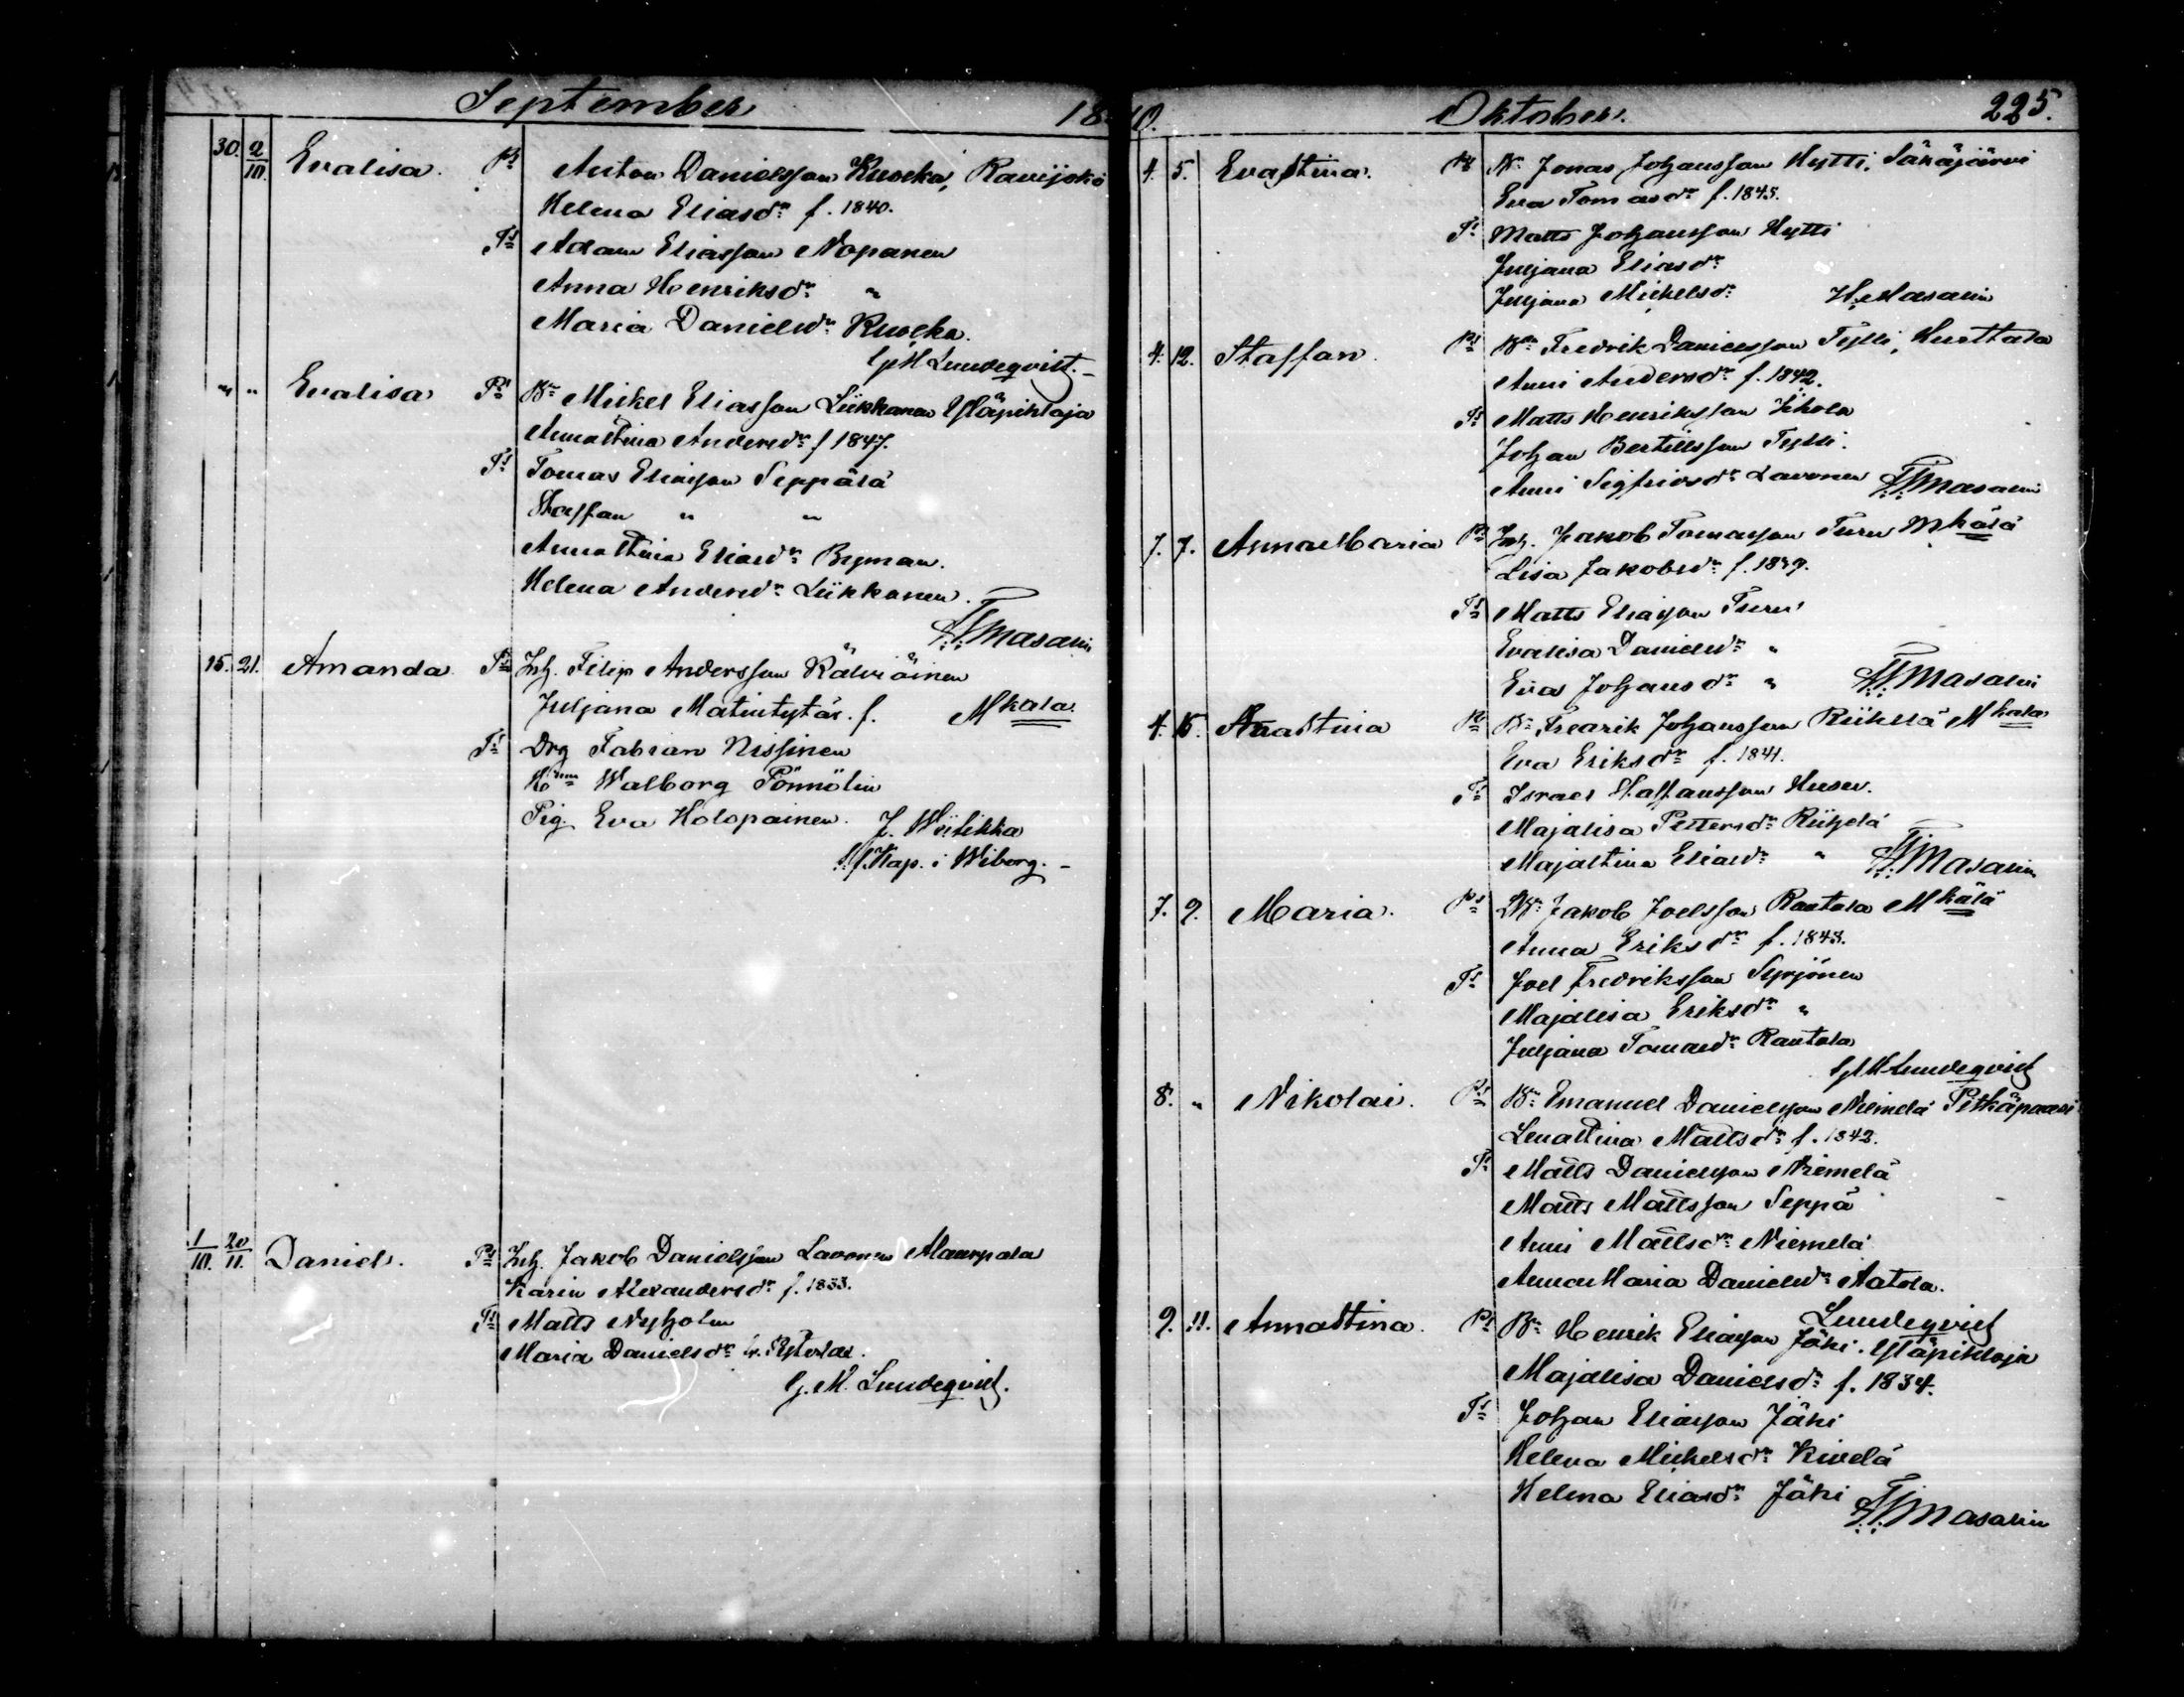 September 18
30. 2/10. Evalisa. Ps Anton Danielsson Kuokka, Ravijoki
Helena Eliasdr f. 1840.
Ts Adam Eliasson Nopanen
Anna Henriksdr "
Maria Danielsdr Kuokka.
G M Lundeqvist.
" " Evalisa Ps Bn Mickel Eliasson Liikkanen Yläpihlaja
Annastina Andersdr f 1847.
Ts Tomas Eliasson Seppälä
Staffan " "
Annastina Eliasdr Byman.
Helena Andersdr Liikkanen.
Masalin
15. 21. Amanda Ps Inh. Filip Andersson Kälviäinen
Juljana Matintytär. f. M kala
Ts Drg Fabian Nissinen
Walborg Pönnölin
Pig. Eva Holopainen. J. Wiitikka
Kap. i Wiborg.
1/10. 20/11. Daniel. Ps Inh. Jakob Danielsson Lavonen Alaurpala
Karin Alexandersdr f. 1833.
Ts Matts Nyholm
Maria Danielsdr
G. M. Lundeqvist.
0. Oktober. 225.
4. 5. Evastina. Ps Bn Jonas Johansson Hytti, Säkäjärvi
Eva Tomasdr f. 1845.
Ts Matts Johansson Hytti
Juljana Eliasdr
Juljana Mickelsdr H. Masalin
4. 12. Staffan. Ps Bn Fredrik Danielsson Tylli, Hurttala
Anni Andersdr f. 1842.
Ts Matts Henriksson Ihola
Johan Bertillsson Tylli.
Anni Sigfridsdr Lavonen Masalin
7. 7. Anna Maria Ps Inh. Jakob Tomasson Turu M kälä
Lisa Jakobsdr f. 1839.
Ts Matts Eliasson Turu
Evalisa Danielsdr "
Eva Johansdr " Masalin
4. 15. Annastina Ps Bn Fredrik Johansson Riihelä M kala
Eva Eriksdr f. 1841.
Ts Israel Staffansson Husu.
Majalisa Pettersdr Riihelä
Majastina Eliasdr " Masalin
7. 9. Maria. Ps Bn Jakob Joelsson Rautola M kälä
Anna Eriksdr f. 1843.
Ts Joel Fredriksson Syrjönen
Majalisa Eriksdr "
Juljana Tomasdr Rautola
G M Lundeqvist
8. " Nikolai. Ps Bn Emanuel Danielsson Niemelä Pitkäpaasi
Lenastina Mattsdr f. 1842.
Ts Matts Danielsson Niemelä
Matts Mattsson Seppä
Anni Mattsdr Niemelä
Anna Maria Danielsdr Aatola.
Lundeqvist
9. 11. Annastina. Ps Bn Henrik Eliasson Jäki. Yläpihlaja
Majalisa Danielsdr f. 1834.
Ts Johan Eliasson Jäki
Helena Mickelsdr Kivelä
Helena Eliasdr Jäki
Masalin